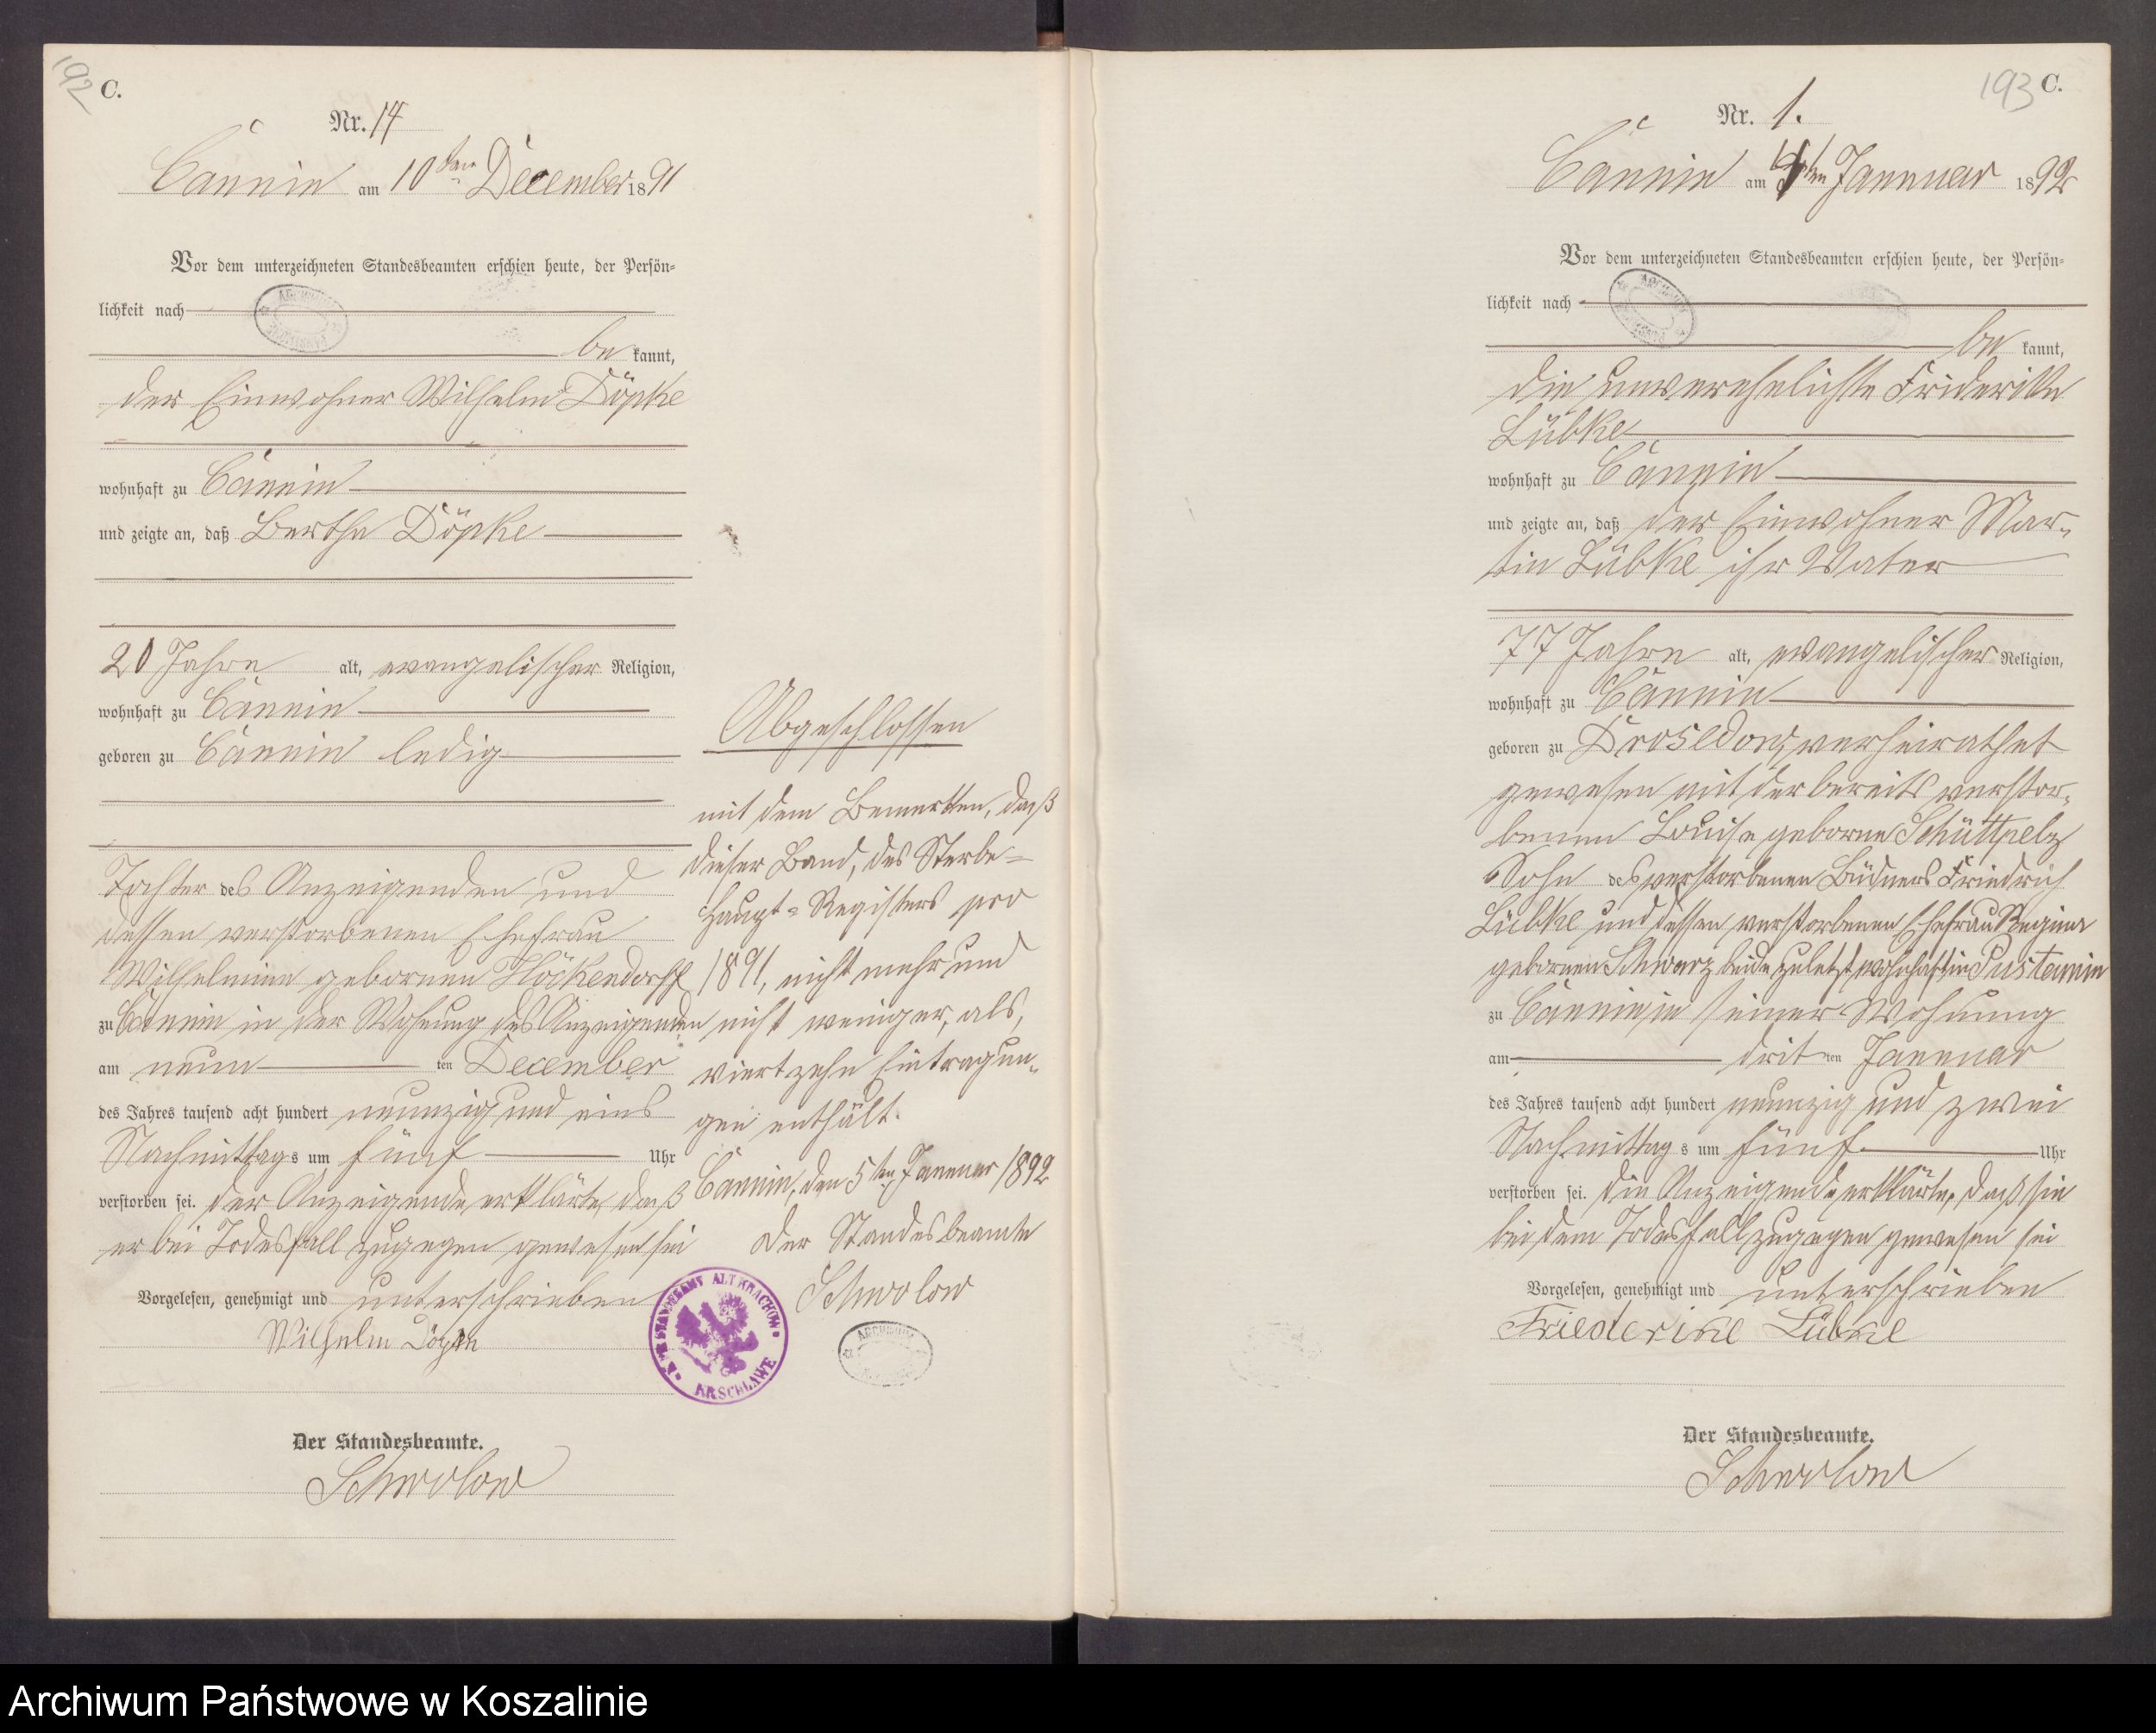 192
C.
Nr. 14
Cannin am 10ten December 1891
Vor dem unterzeichneten Standesbeamten erschien heute, der Persön-
lichkeit nach
be kannt,
der Einwohner Wilhelm Döpke
wohnhaft zu Cannin
und zeigte an, daß Bertha Döpke
20 Jahre alt, evangelischer Religion,
wohnhaft zu Cannin
geboren zu Cannin ledig
Tochter des Anzeigenden und
dessen verstorbenen Ehefrau
Wilhelmine gebornen Höckendorff
zu Cannin in der Wohnung des Anzeigenden
am neun ten December
des Jahres tausend acht hundert neunzig und eins
Nachmittags um fünf Uhr
verstorben sei. Der Anzeigende erklärte, daß
er bei Todesfall zugegen gewesen sei
Vorgelesen, genehmigt und unterschrieben
Wilhelm Döpke
Der Standesbeamte.
Schwolow
Abgeschlossen
mit dem Bemerken, daß
dieser Band, des Sterbe-
Haupt-Registers pro
1891, nicht mehr und
nicht weniger, als,
viertzehn Eintragun-
gen enthält.
Cannin, den 5ten Januar 1892
Der Standesbeamte
Schwolow
STANDESAMT ALT KRACHOW
KR SCHLAWE
ARCHIWUM
193
C.
Nr. 1.
Cannin am ten Januar 1892
Vor dem unterzeichneten Standesbeamten erschien heute, der Persön-
lichkeit nach
be kannt,
die unverehelichte Friderike
Lübke
wohnhaft zu Cannin
und zeigte an, daß der Einwohner Mar-
tin Lübke ihr Vater
77 Jahre alt, evangelischer Religion,
wohnhaft zu Cannin
geboren zu Drosedow, verheirathet
gewesen mit der bereits verstor-
benen Louise geborne Schüttpelz
Sohn des verstorbenen Büdners Friedrich
Lübke und dessen verstorbenen Ehefrau Regina
gebornen Schwarz beide zuletzt wohnhaft in Pustamin
zu Cannin, in seiner Wohnung
am drit ten Januar
des Jahres tausend acht hundert neunzig und zwei
Nachmittags um fünf Uhr
verstorben sei. Die Anzeigende erklärte, daß sie
bei dem Todesfall zugegen gewesen sei
Vorgelesen, genehmigt und unterschrieben
Friederike Lübke
Der Standesbeamte.
Schwolow
Archiwum Państwowe w Koszalinie